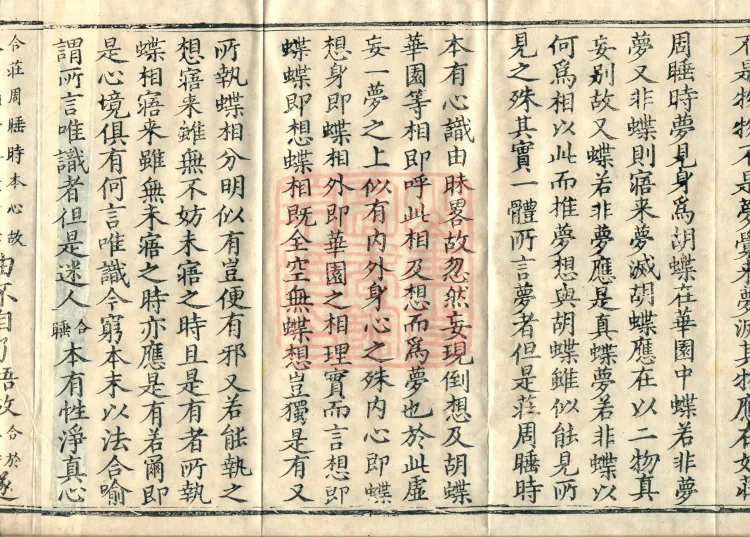 不是物物不是夢覺來夢滅其物應在如莊
周睡時夢見身爲胡蝶在華園中蝶若非夢
夢又非蝶則寤來夢滅胡蝶應在以二物真
妄別故又蝶若非夢應是真蝶夢若非蝶以
何爲相以此而推夢想與胡蝶雖似能見所
見之殊其實一體所言夢者但是莊周睡時
本有心識由昧畧故忽然妄現倒想及胡蝶
華園等相即呼此相及想而爲夢也於此虛
妄一夢之上似有內外身心之殊內心即蝶
想身即蝶相外即華園之相理實而言想即
蝶蝶即想蝶相既全空無蝶想豈獨是有又
所執蝶相分明似有豈便有邪又若能執之
想寤来雖無不妨未寤之時且是有者所執
蝶相寤来雖無未寤之時亦應是有若爾即
是心境俱有何言唯識今窮本末以法合喻
謂所言唯識者但是迷人合睡本有性淨真心
合莊周睡時本心故由不自了悟故合於遂